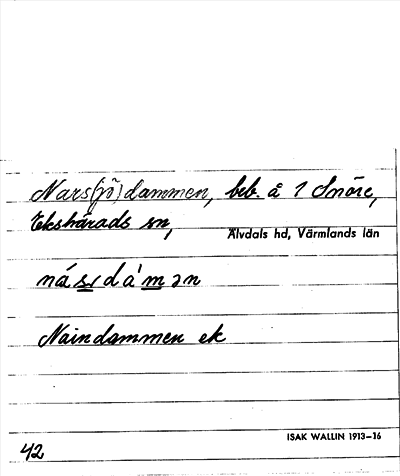 Nars(jö)dammen, beb. å 1 Snöre,
Ekshärads sn,
Älvdals hd, Värmlands län
ná s̲ı dá'm̲ ən
Naindammen ek
ISAK WALLIN 1913-16
42